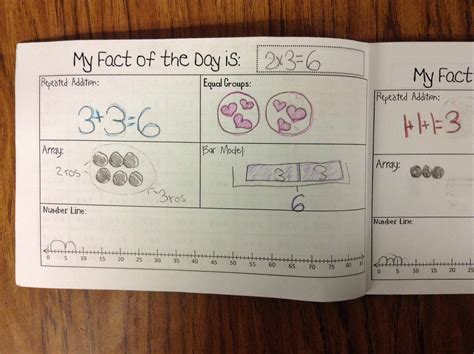 My Fact of the Day is: 2x3=6
Repeated Addition:
3+3=6
Equal Groups:
Array:
2 ros
3 ros
Bar Model:
3 3
6
Number Line:
0 5 10 15 20 25 30 35 40 45 50 55 60 65 70 75 80
My Fact
Repeated Addition:
1+1+1=3
Array:
Number Line:
0 5 10